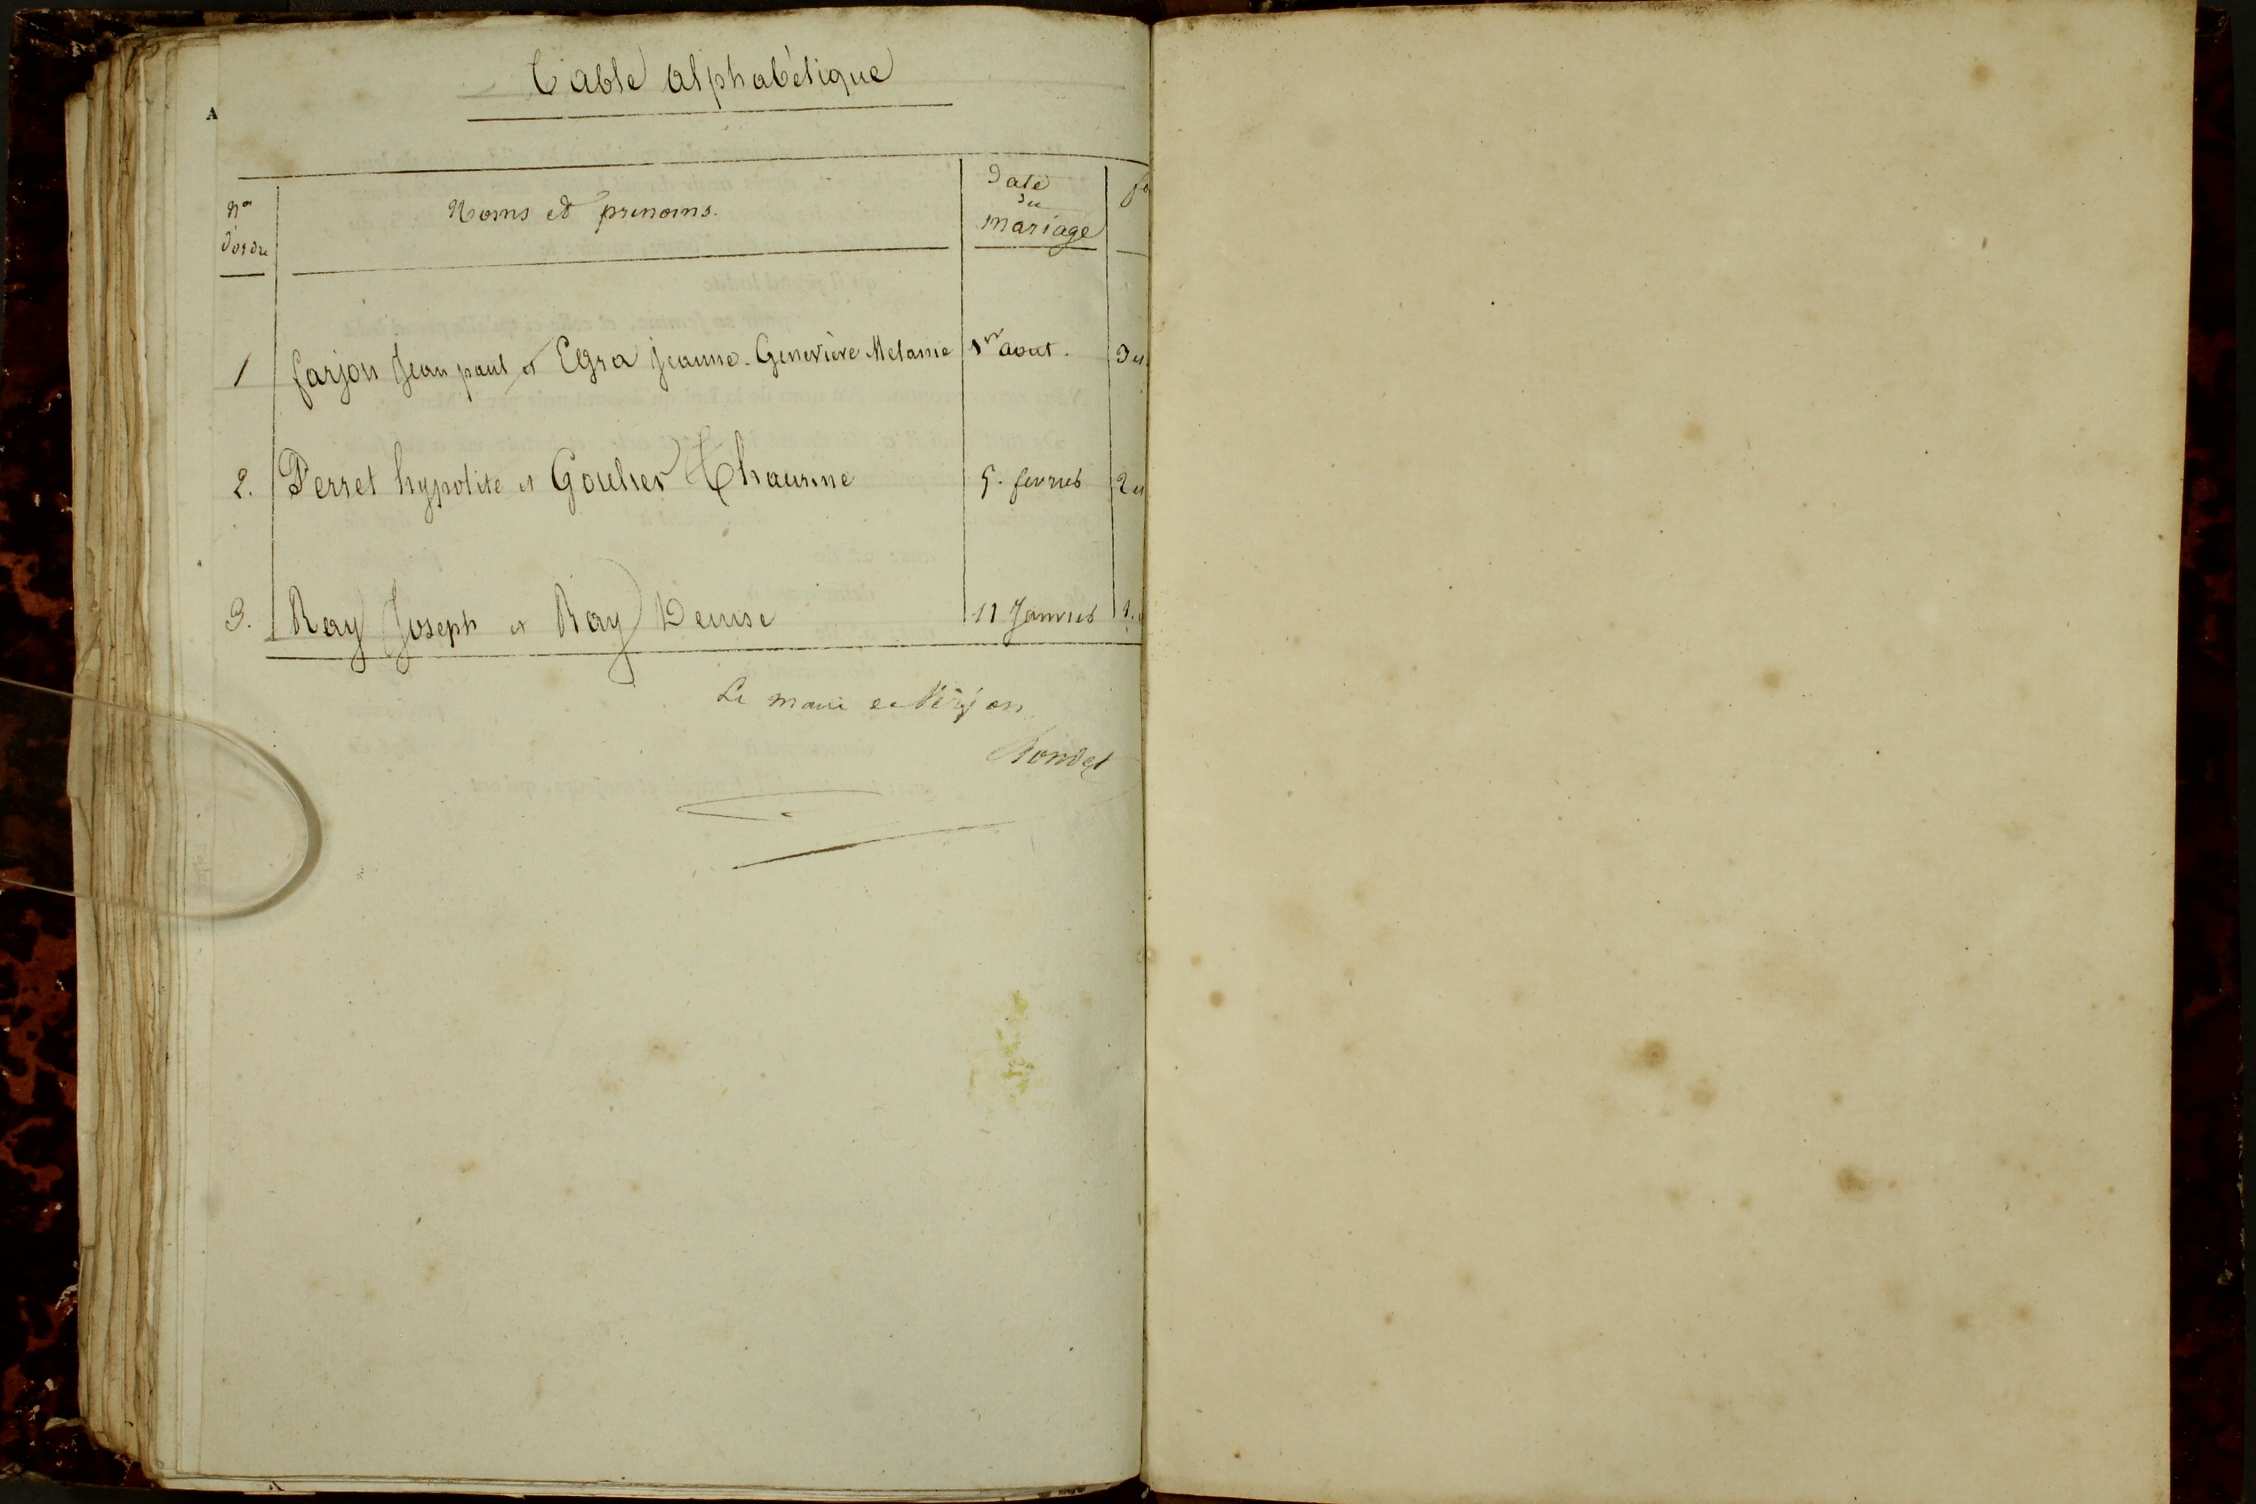 Table alphabétique
A
Nos d'ordre
Noms et prenoms.
Date du mariage
fo
1 farjon Jean paul et Egra jeanne Geneviève Melanie 1er aout.
2. Perret hypolite et Goulier 5. fevrier
3. Ray Joseph et Ray Denise 11 Janvier
Le maire de Verjon